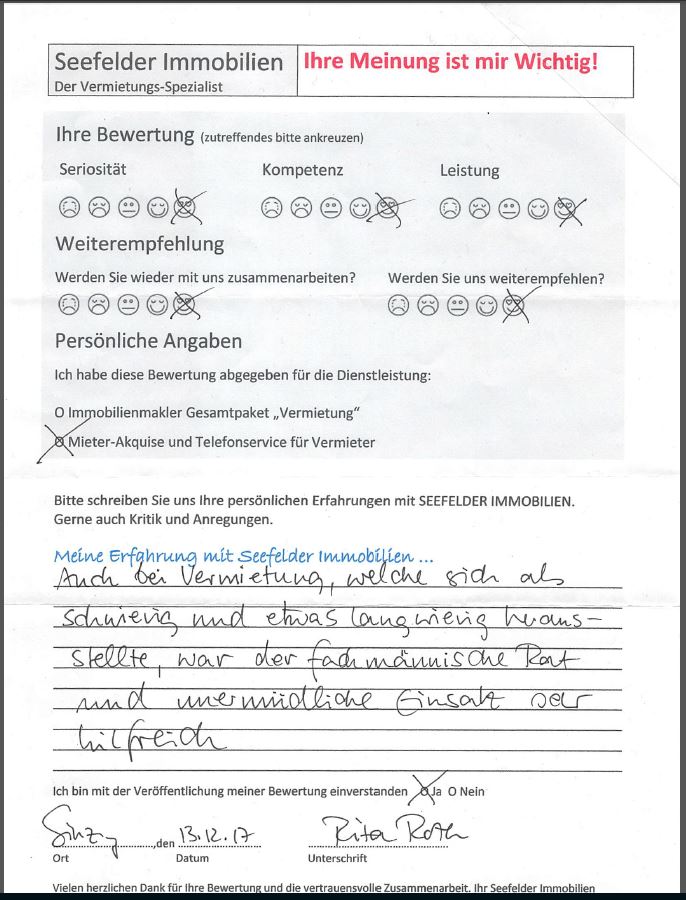 Seefelder Immobilien
Der Vermietungs-Spezialist
Ihre Meinung ist mir Wichtig!
Ihre Bewertung (zutreffendes bitte ankreuzen)
Seriosität Kompetenz Leistung
Weiterempfehlung
Werden Sie wieder mit uns zusammenarbeiten? Werden Sie uns weiterempfehlen?
Persönliche Angaben
Ich habe diese Bewertung abgegeben für die Dienstleistung:
O Immobilienmakler Gesamtpaket „Vermietung“
O Mieter-Akquise und Telefonservice für Vermieter
Bitte schreiben Sie uns Ihre persönlichen Erfahrungen mit SEEFELDER IMMOBILIEN.
Gerne auch Kritik und Anregungen.
Meine Erfahrung mit Seefelder Immobilien ...
Auch bei Vermietung, welche sich als
schwierig und etwas langwierig heraus-
stellte, war der fachmännische Rat
und unermüdliche Einsatz sehr
hilfreich
Ich bin mit der Veröffentlichung meiner Bewertung einverstanden O Ja O Nein
Sinzig, den 13.12.17 Rita Roth
Ort Datum Unterschrift
Vielen herzlichen Dank für Ihre Bewertung und die vertrauensvolle Zusammenarbeit. Ihr Seefelder Immobilien